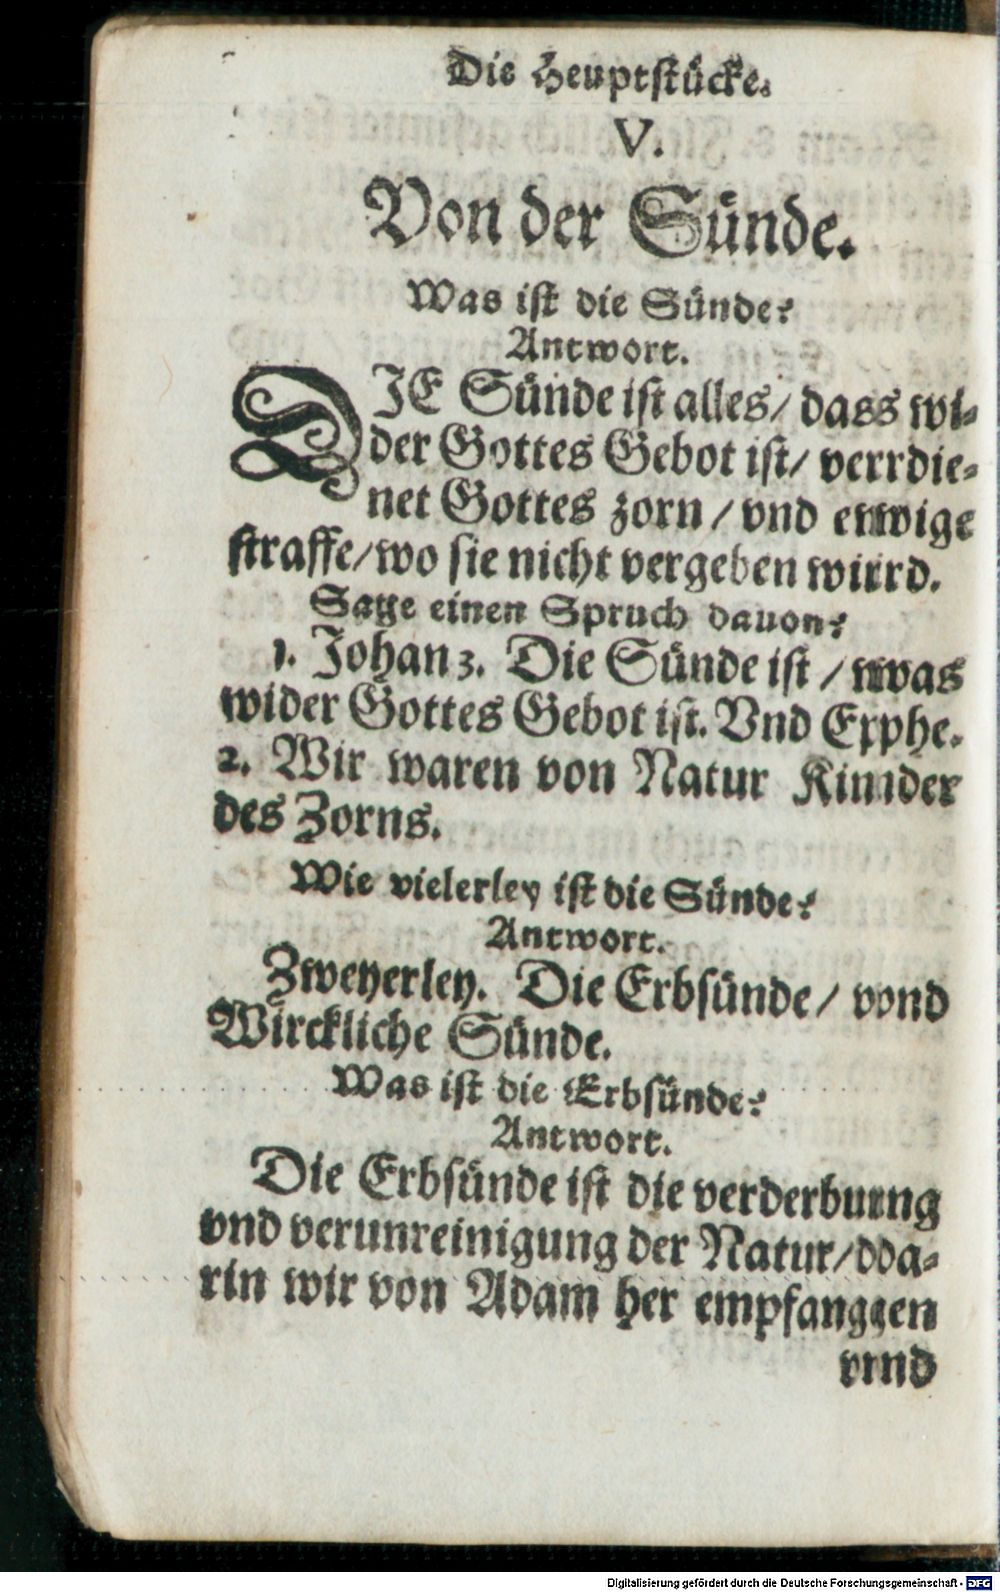 Die Heuptstücke.
V.
Von der Sünde.
Was ist die Sünde?
Antwort.
DIE Sünde ist alles/ dass wi-
der Gottes Gebot ist/ verdie-
net Gottes zorn / vnd ewige
straffe/wo sie nicht vergeben wird.
Sage einen Spruch dauon?
1. Johan 3. Die Sünde ist / was
wider Gottes Gebot ist. Vnd Ephe.
2. Wir waren von Natur Kinder
des Zorns.
Wie vielerley ist die Sünde?
Antwort.
Zweyerley. Die Erbsünde/ vnd
Wirckliche Sünde.
Was ist die Erbsünde?
Antwort.
Die Erbsünde ist die verderbung
vnd verunreinigung der Natur/da-
rin wir von Adam her empfangen
vnd
Digitalisierung gefördert durch die Deutsche Forschungsgemeinschaft - DFG